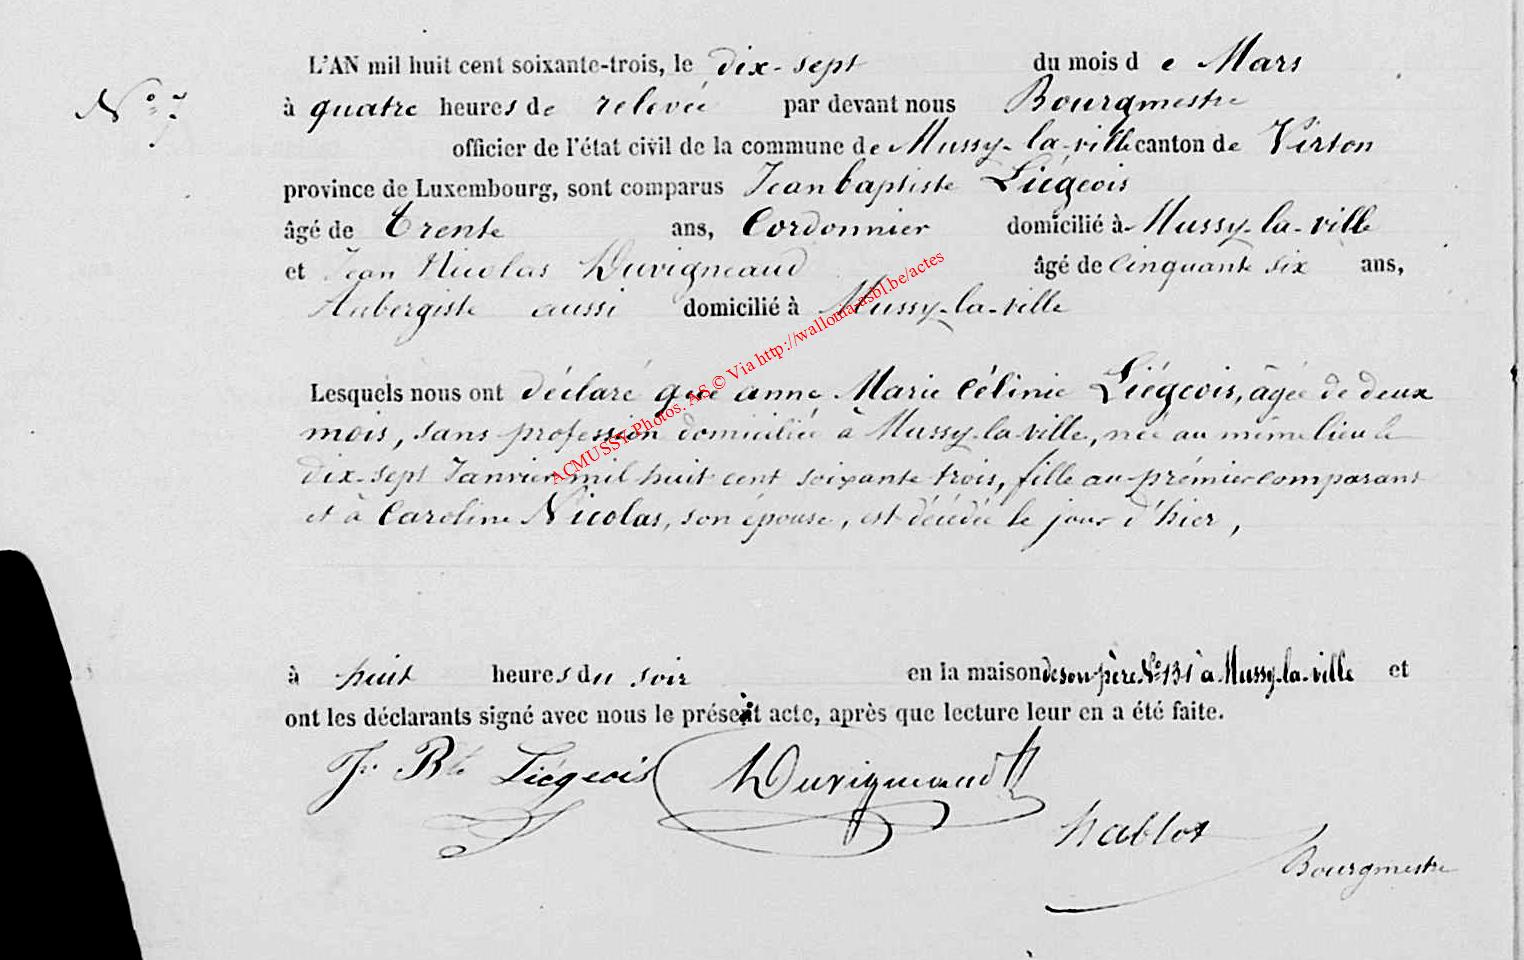 L'AN mil huit cent soixante-trois, le dix-sept du mois d e Mars
N° 7
à quatre heures de relevée par devant nous Bourgmestre
officier de l'état civil de la commune de Mussy-la-ville canton de Virton
province de Luxembourg, sont comparus Jean baptiste Liégeois
âgé de trente ans, Cordonnier domicilié à Mussy-la-ville
et Jean Nicolas Duvigneaud âgé de Cinquante six ans,
Aubergiste aussi domicilié à Mussy-la-ville
Lesquels nous ont déclaré que anne Marie Célinie Liégeois, âgée de deux
mois, sans profession domiciliée à Mussy-la-ville, née au même lieu le
dix-sept Janvier mil huit cent soixante trois, fille au prémier comparant
et à Caroline Nicolas, son épouse, est décédée le jour d'hier,
à huit heures du soir en la maison de son père N° 131 à Mussy-la-ville et
ont les déclarants signé avec nous le présent acte, après que lecture leur en a été faite.
J. Bte Liégeois Duvigneaud
hablot
Bourgmestre
ACMUSSY Photos. AS © Via http://wallonia-asbl.be/actes